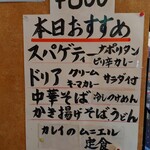 ¥800
本日おすすめ
スパゲティー ナポリタン
ピリ辛カレー
ドリア クリーム サラダ付
キーマカレー
中華そば 冷しのめん
かき揚げそばうどん
カレイのムニエル
定食